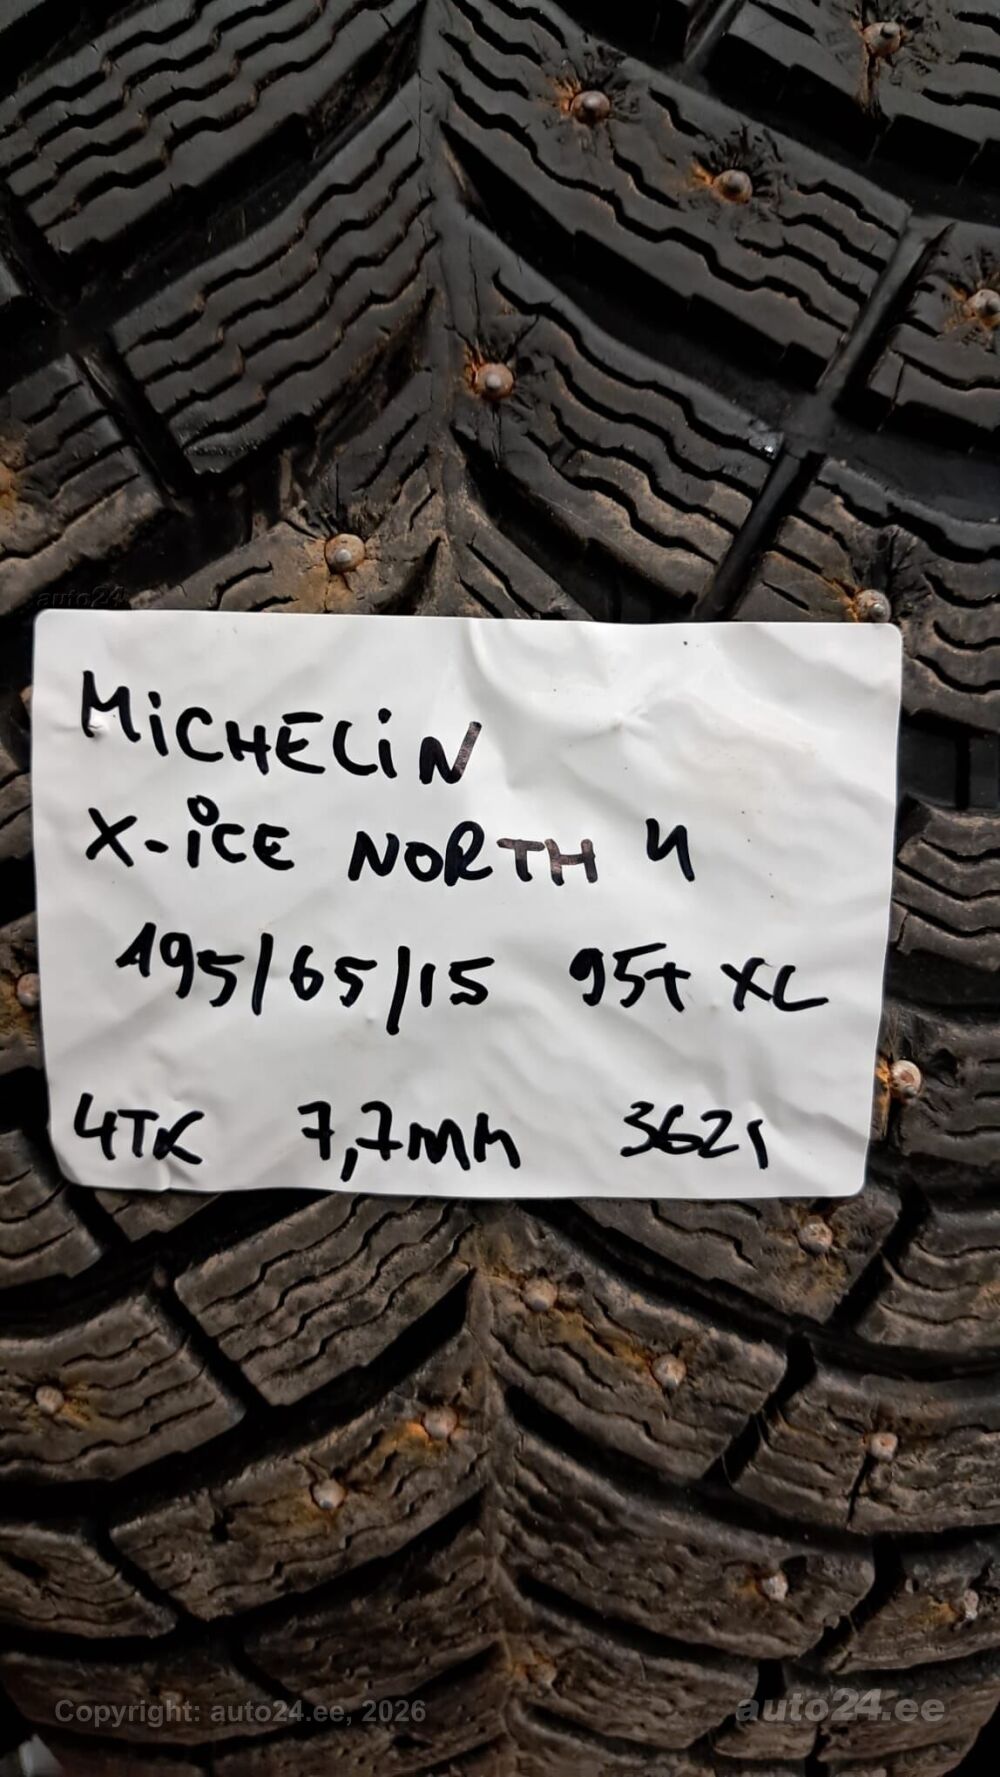 auto24
MiCHELiN
X-iCE NORTH 4
195/65/15 95T XL
4TK 7,7mm 3621
Copyright: auto24.ee, 2026
auto24.ee